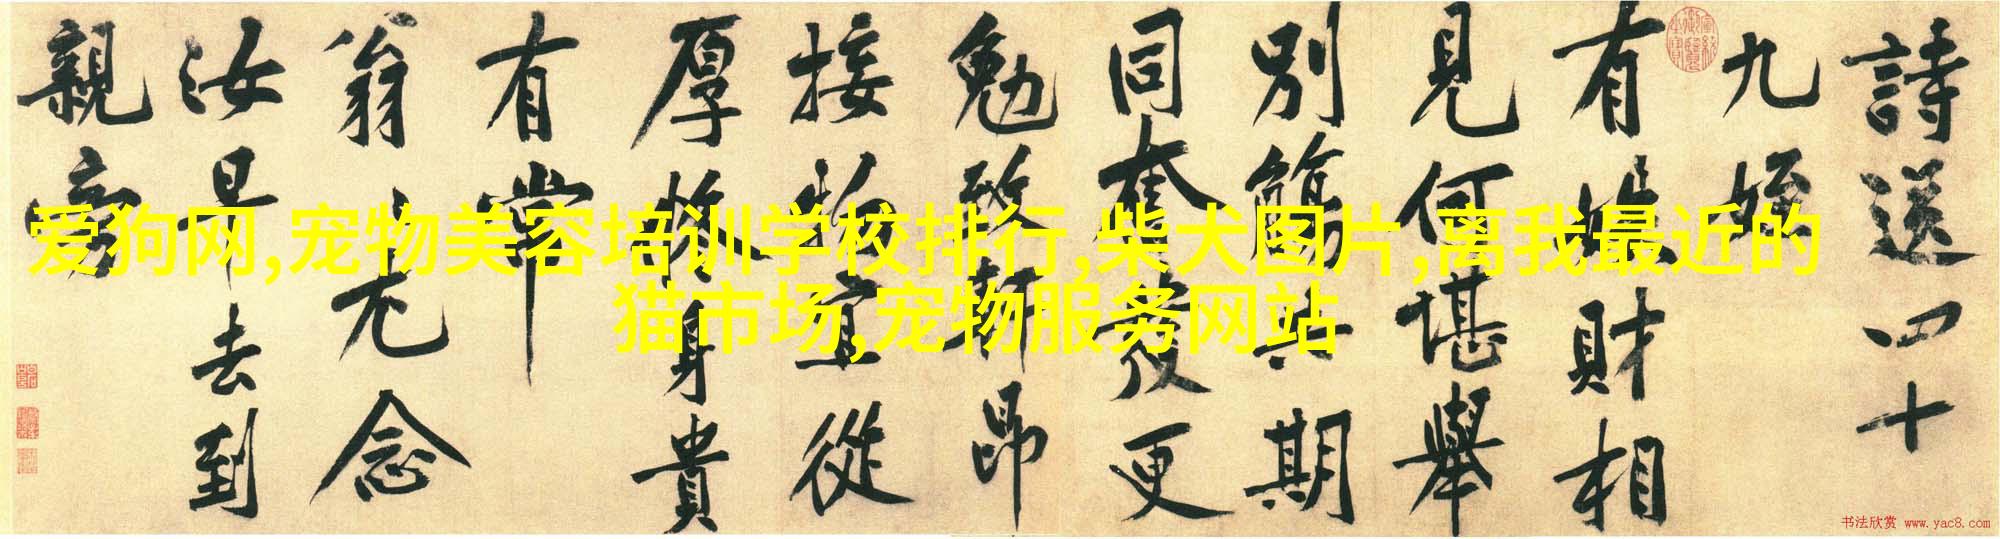 爱狗网,宠物美容培训学校排行,柴犬图片,离我最近的
猫市场,宠物服务网站
詩送四十
九姪
有財相
見何堪舉
別觴與期
同奮發更
勉致軒昂
接物宜從
厚修身貴
有常
翁〻尤念
汝早去到
親旁
书法欣赏 www.yac8.com